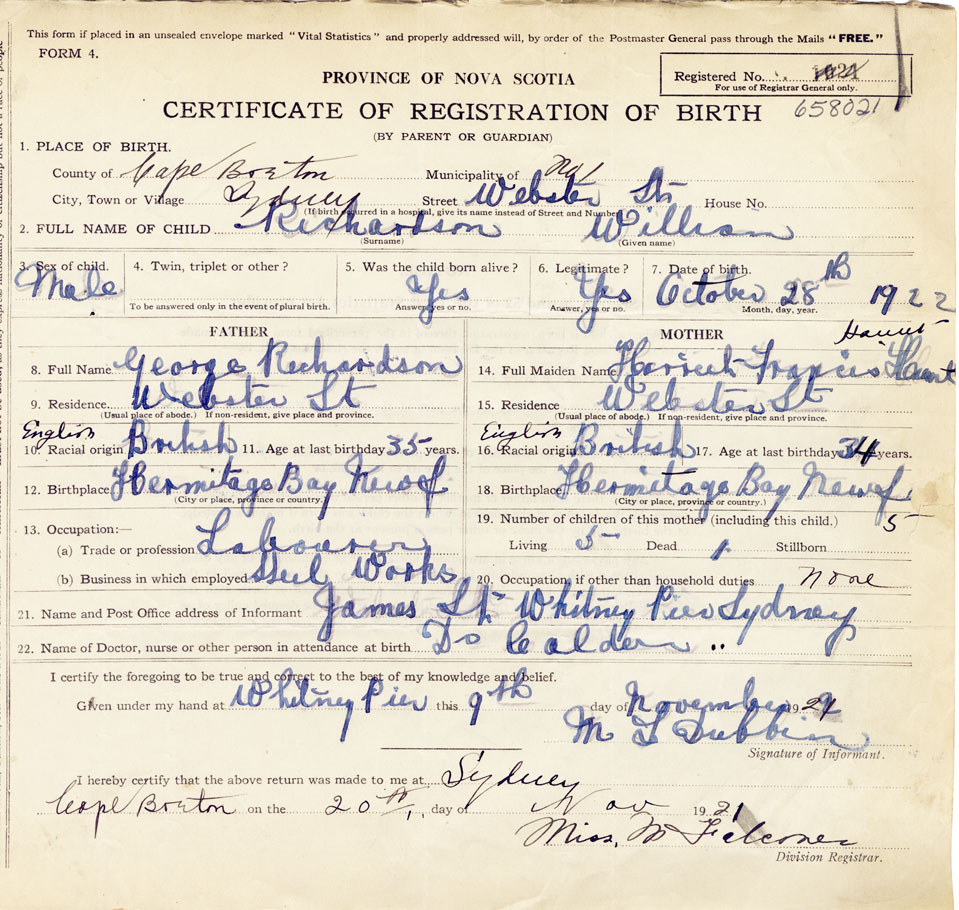 This form if placed in an unsealed envelope marked "Vital Statistics" and properly addressed will, by order of the Postmaster General pass through the Mails "FREE."
FORM 4.
PROVINCE OF NOVA SCOTIA
Registered No.
For use of Registrar General only.
CERTIFICATE OF REGISTRATION OF BIRTH 658021
(BY PARENT OR GUARDIAN)
1. PLACE OF BIRTH.
County of Cape Breton Municipality of
City, Town or Village Sydney Street Webster St House No.
(If birth occurred in a hospital, give its name instead of Street and Number)
2. FULL NAME OF CHILD Richardson William
(Surname) (Given name)
3. Sex of child. 4. Twin, triplet or other? 5. Was the child born alive? 6. Legitimate? 7. Date of birth.
Male Yes Yes October 28th 1922
To be answered only in the event of plural birth. Answer, yes or no. Answer, yes or no. Month, day, year.
FATHER MOTHER
8. Full Name George Richardson 14. Full Maiden Name Francis
9. Residence Webster St 15. Residence Webster St
(Usual place of abode.) If non-resident, give place and province. (Usual place of abode.) If non-resident, give place and province.
English English
10. Racial origin British 11. Age at last birthday 35 years. 16. Racial origin British 17. Age at last birthday 34 years.
12. Birthplace Hermitage Bay Newf 18. Birthplace Hermitage Bay Newf
(City or place, province or country.) (City or place, province or country.)
13. Occupation:— 19. Number of children of this mother (including this child.) 5
(a) Trade or profession Labourer Living 5 Dead 1 Stillborn
(b) Business in which employed Steel Works 20. Occupation, if other than household duties none
21. Name and Post Office address of Informant James St. Whitney Pier Sydney
22. Name of Doctor, nurse or other person in attendance at birth Calder
I certify the foregoing to be true and correct to the best of my knowledge and belief.
Given under my hand at Whitney Pier this 9th day of November 19
M
Signature of Informant.
I hereby certify that the above return was made to me at Sydney
Cape Breton on the 20th, day of Nov 1921
Miss. M Falconer
Division Registrar.